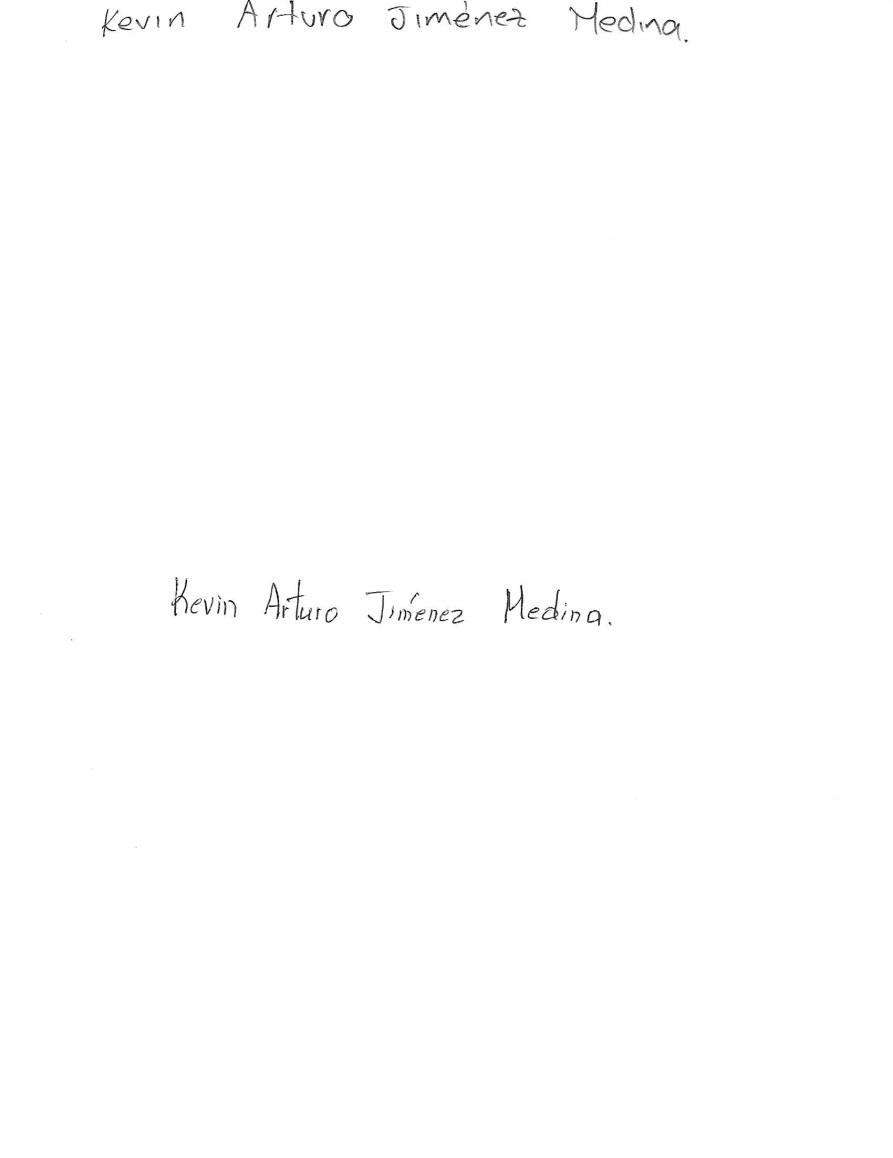 Kevin Arturo Jiménez Medina.
Kevin Arturo Jiménez Medina.